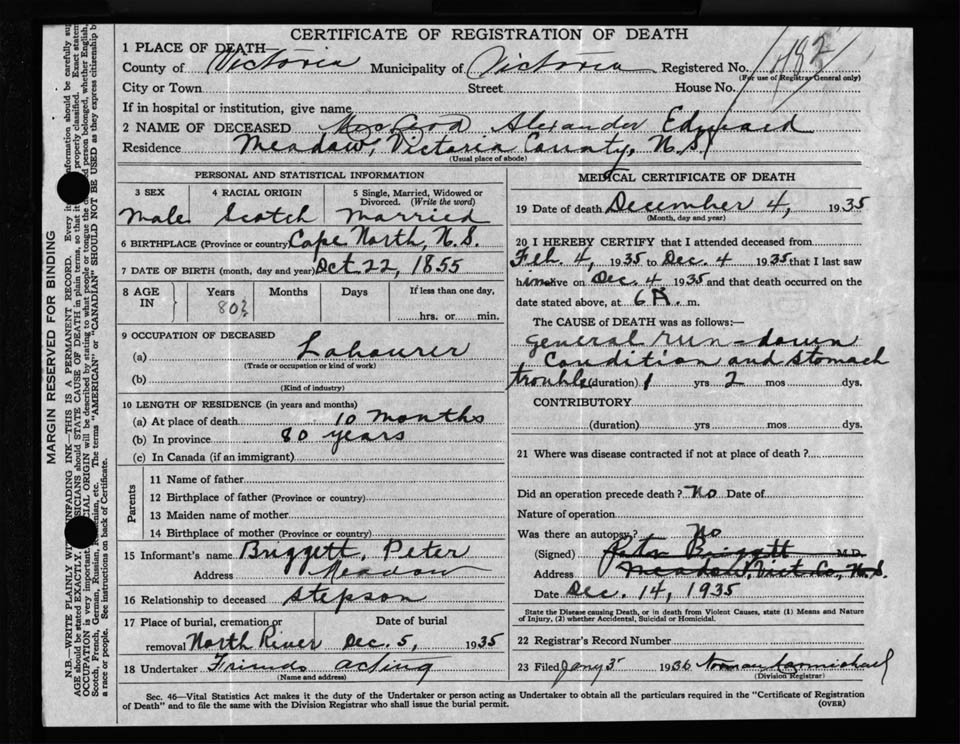 CERTIFICATE OF REGISTRATION OF DEATH
1 PLACE OF DEATH—
County of Victoria Municipality of Victoria Registered No. 1182
(For use of Registrar General only)
City or Town Street House No.
If in hospital or institution, give name
2 NAME OF DECEASED MacLeod Alexander Edward
Residence Meadow, Victoria County, N.S.
(Usual place of abode)
PERSONAL AND STATISTICAL INFORMATION
3 SEX 4 RACIAL ORIGIN 5 Single, Married, Widowed or Divorced. (Write the word)
Male Scotch Married
6 BIRTHPLACE (Province or country) Cape North, N.S.
7 DATE OF BIRTH (month, day and year) Oct. 22, 1855
8 AGE IN Years Months Days If less than one day,
80 hrs. or min.
9 OCCUPATION OF DECEASED
(a) Labourer
(Trade or occupation or kind of work)
(b)
(Kind of industry)
10 LENGTH OF RESIDENCE (in years and months)
(a) At place of death 10 months
(b) In province 80 years
(c) In Canada (if an immigrant)
Parents
11 Name of father
12 Birthplace of father (Province or country)
13 Maiden name of mother
14 Birthplace of mother (Province or country)
15 Informant's name Briggett, Peter
Address Meadow
16 Relationship to deceased Stepson
17 Place of burial, cremation or removal Date of burial
North River Dec. 5, 1935
18 Undertaker Friends acting
(Name and address)
MEDICAL CERTIFICATE OF DEATH
19 Date of death December 4, 1935
(Month, day and year)
20 I HEREBY CERTIFY that I attended deceased from
Feb. 4, 1935 to Dec. 4 1935 that I last saw
him alive on Dec. 4 1935 and that death occurred on the
date stated above, at 6 A. m.
The CAUSE of DEATH was as follows:—
general run-down
condition and stomach
trouble (duration) 1 yrs 2 mos dys.
CONTRIBUTORY
(duration) yrs mos dys.
21 Where was disease contracted if not at place of death?
Did an operation precede death? No Date of
Nature of operation
Was there an autopsy? No
(Signed) Peter Briggett M.D.
Address Meadow, Vict. Co., N.S.
Date Dec. 14, 1935
State the Disease causing Death, or in death from Violent Causes, state (1) Means and Nature
of Injury, (2) whether Accidental, Suicidal or Homicidal.
22 Registrar's Record Number
23 Filed Jany 3 1936 Norman Carmichael
(Division Registrar)
Sec. 46—Vital Statistics Act makes it the duty of the Undertaker or person acting as Undertaker to obtain all the particulars required in the "Certificate of Registration
of Death" and to file the same with the Division Registrar who shall issue the burial permit.
(OVER)
MARGIN RESERVED FOR BINDING